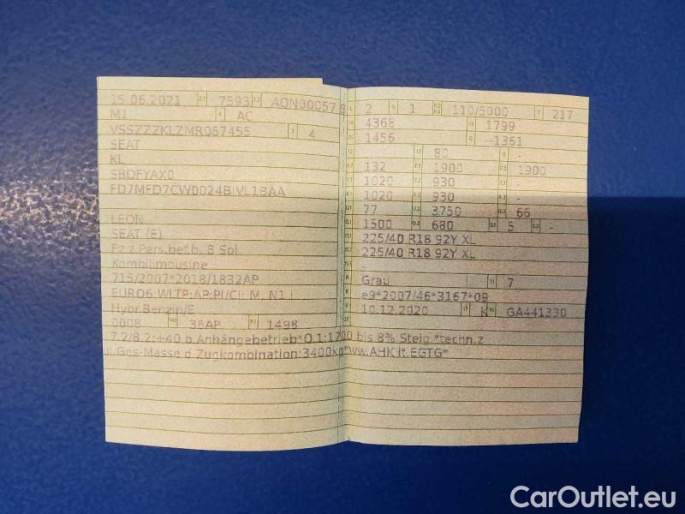 15.06.2021 7593 AQN00057 8
M1 AC
VSSZZZKLZMR067455 4
SEAT
KL
SBDFYAX0
FD7MFD7CW0024BIVL1BAA
LEON
SEAT (E)
Fz.z.Pers.bef.b. 8 Spl.
Kombilimousine
715/2007*2018/1832AP
EURO6 WLTP;AP;PI/CI; M, N1 I
Hybr.Benzin/E
0008 36AP 1498
2 1 110/5000 217
4368 1799
1456 -1351
- 80 -
132 1900 1900
1020 930 -
1020 930 -
77 3750 66
1500 680 5 -
225/40 R18 92Y XL
225/40 R18 92Y XL
-
Grau 7
e9*2007/46*3167*09
10.12.2020 K GA441330
7.2/8.2:+40 b.Anhängebetrieb*O.1:1700 bis 8% Steig.*techn.z
l. Ges-Masse d.Zugkombination:3400kg*ww.AHK lt.EGTG*
CarOutlet.eu